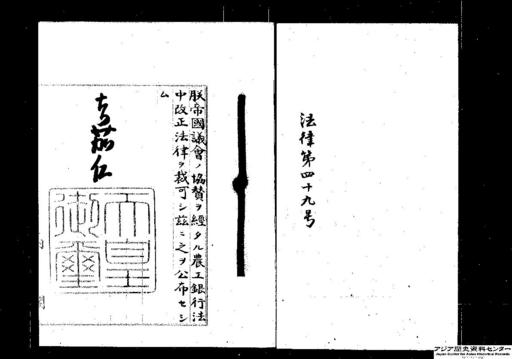 法律第四十九号
朕帝國議會ノ協賛ヲ經タル農工銀行法
中改正法律ヲ裁可シ茲ニ之ヲ公布セシ
ム
嘉仁
天皇
御璽
アジア歴史資料センター
Japan Center for Asian Historical Records